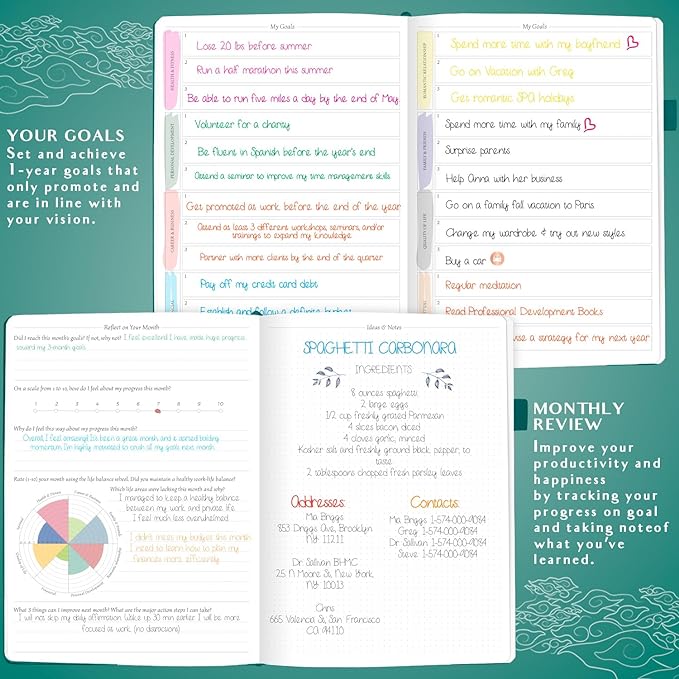 YOUR GOALS
Set and achieve
1-year goals that
only promote and
are in line with
your vision.
My Goals
HEALTH & FITNESS
1 Lose 20 lbs before summer
2 Run a half marathon this summer
3 Be able to run five miles a day by the end of May
PERSONAL DEVELOPMENT
1 Volunteer for a charity
2 Be fluent in Spanish before the year's end
3 Attend a seminar to improve my time management skills
CAREER & BUSINESS
1 Get promoted at work before the end of the year
2 Attend at least 3 different workshops, seminars, and/or
trainings to expand my knowledge
3 Partner with more clients by the end of the quarter
1 Pay off my credit card debt
2 Establish and follow a definite budget
My Goals
ROMANTIC RELATIONSHIP
1 Spend more time with my boyfriend
2 Go on Vacation with Greg
3 Get romantic SPA holidays
FAMILY & FRIENDS
1 Spend more time with my family
2 Surprise parents
3 Help Anna with her business
QUALITY OF LIFE
1 Go on a family fall vacation to Paris
2 Change my wardrobe & try out new styles
3 Buy a car
1 Regular meditation
2 Read Professional Development Books
ise a strategy for my next year
Reflect on Your Month
Did I reach this months goals? If not, why not? I feel excellent! I have made huge progress
toward my 3-month goals
On a scale from 1 to 10, how do I feel about my progress this month?
1 2 3 4 5 6 7 8 9 10
Why do I feel this way about my progress this month?
Overall, I feel amazing! It's been a great month, and I started building
momentum. I'm highly motivated to crush all my goals next month.
Rate (1-10) your month using the life balance wheel. Did you maintain a healthy work-life balance?
Which life areas were lacking this month and why?
I managed to keep a healthy balance
between my work and private life
I feel much less overwhelmed
I didn't meet my budget this month
I need to learn how to plan my
finances more efficiently.
What 3 things can I improve next month? What are the major action steps I can take?
I will not skip my daily affirmation. Wake up 30 min earlier. I will be more
focused at work. (no distractions)
Ideas & Notes
SPAGHETTI CARBONARA
INGREDIENTS
8 ounces spaghetti
2 large eggs
1/2 cup freshly grated Parmesan
4 slices bacon, diced
4 cloves garlic, minced
Kosher salt and freshly ground black pepper, to
taste
2 tablespoons chopped fresh parsley leaves
Addresses:
Ma Briggs
853 Driggs Ave, Brooklyn,
NY 11211
Dr. Sullivan BHMC
25 N Moore St, New York,
NY 10013
Chris
665 Valencia St, San Francisco
CA 94110
Contacts:
Ma. Briggs 1-574-000-9084
Greg 1-574-000-9084
Dr. Sullivan 1-574-000-9084
Steve 1-574-000-9084
MONTHLY
REVIEW
Improve your
productivity and
happiness
by tracking your
progress on goal
and taking noteof
what you've
learned.